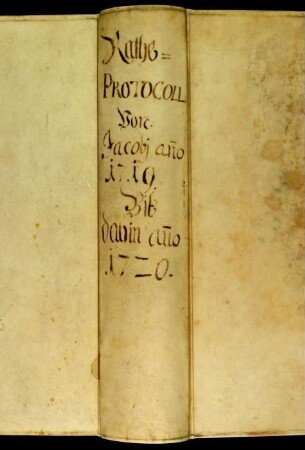 Raths=
PROTOCOLL
Von
Jacobj año
1719
Biß
dahin año
1720.